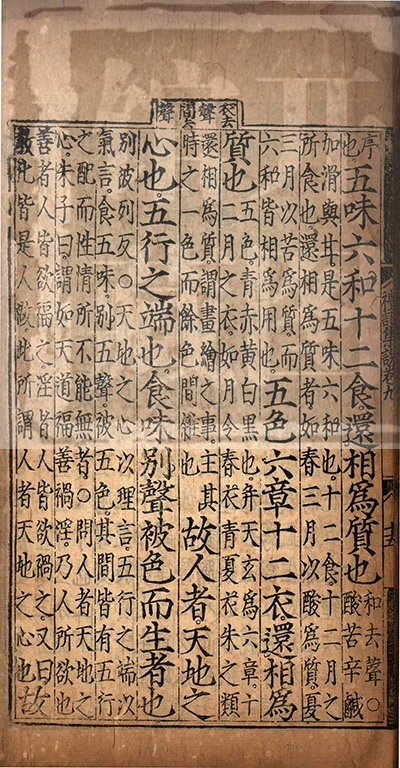 衣去
聲
間去
聲
序
也。五味六和十二食還相爲質也和去聲○
酸苦辛鹹
加滑與甘。是五味六和也。十二食。十二月之
所食也。還相爲質者。如春三月以酸爲質。夏
三月以苦爲質。而
六和皆相爲用也。五色六章十二衣還相爲
質也五色。青赤黃白黑也。并天玄爲六章。十
二月之衣。如月令春衣青夏衣朱之類
還相爲質。謂畫繪之事。主其
時之一色。而餘色間雜也故人者。天地之
心也。五行之端也。食味別聲被色而生者也
別彼列反。○天地之心以理言。五行之端以
氣言。食五味。別五聲。被五色。其間皆有五行
之配。而性情所不能無者。○問人者天地之
心。朱子曰。謂如天道福善禍淫。乃人所欲也
善者人皆欲福之。淫者人皆欲禍之。又曰
教化皆是人做。此所謂人者天地之心也故